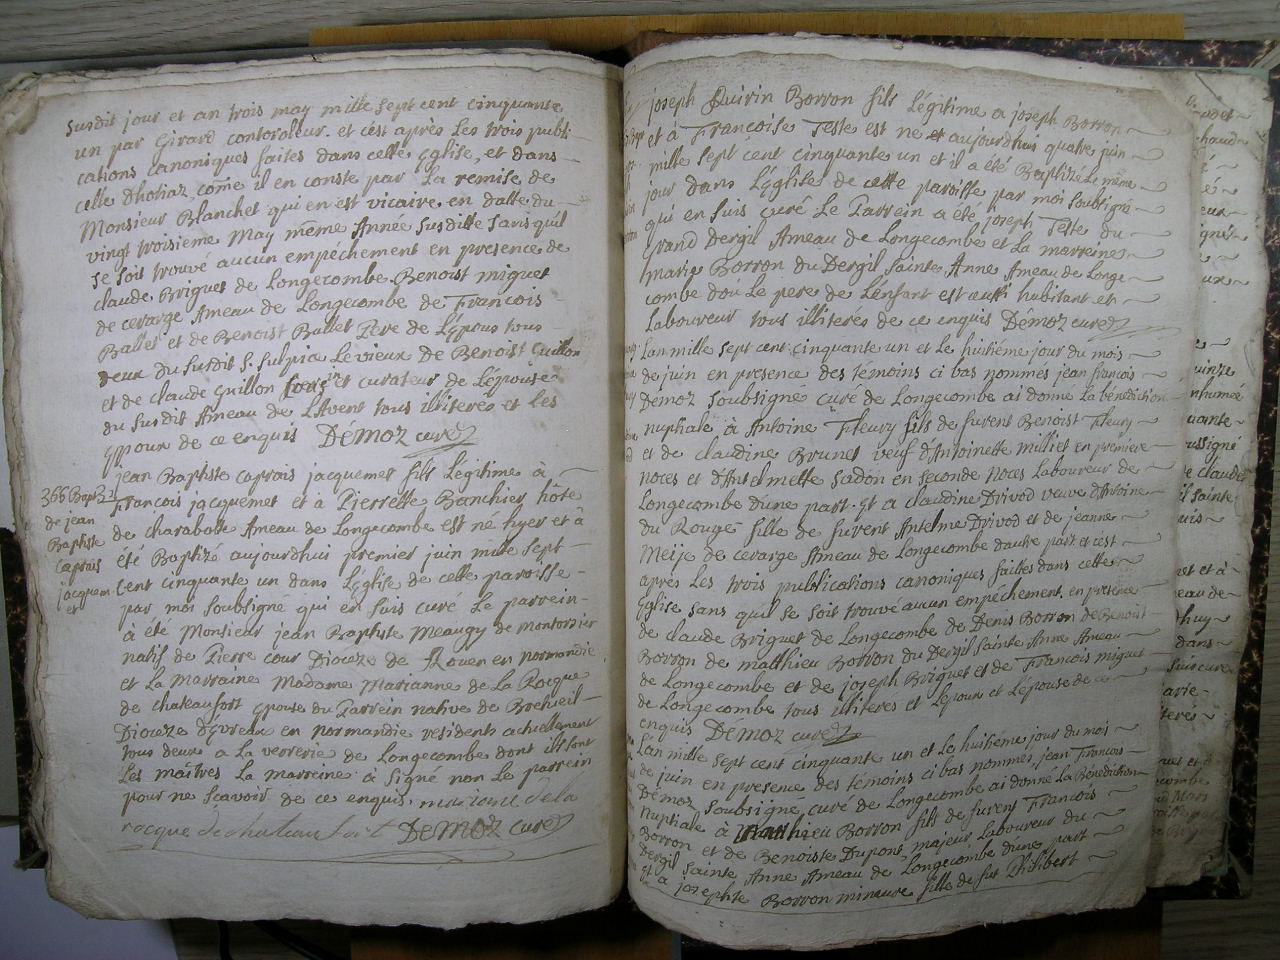 susdit jour et an trois may mille sept cent cinquante
un par Girard contoroleur. et c'est après les trois publi-
cations canoniques faites dans cette Eglise, et dans
celle dhotiaz, come il en conste par la remise de
Monsieur Blanchet qui en est vicaire en datte du
vingt troisieme May même Année susditte sans quil
se soit trouvé aucun empéchement en presence de
claude Briguet de Longecombe Benoist miguet
de cerarge Ameau de Longecombe de François
Ballet et de Benoist Ballet Pere de Lépoux tous
deux du susdit S. Sulpice Le vieux de Benoist Guillon
et de claude Guillon et curateur de Lépouse
du susdit Ameau de LAvent tous illiterés et les
Epoux de ce enquis DÉMOZ curé
366 Bapt
de jean
Baptiste
Caprais
jacquem
et
jean Baptiste caprais jacquemet fils Légitime à
François jacquemet et à Pierrette Banchier, hôte
de charabotte Ameau de Longecombe est né hyer et à
été Baptizé aujourdhui premier juin mille sept
cent cinquante un dans L'église de cette paroisse
par moi soubsigné qui en suis curé Le parrein
à été Monsieur jean Baptiste Meaugy de Montorsier
natif de Pierre cour Dioceze de Rouen en normandie
et La Marraine Madame Marianne de La Rocque
de chateaufort Epouse du Parrein native de Breheil
Dioceze d'Evreux en normandie residents actuellement
tous deux à La verrerie de Longecombe dont ils sont
Les maîtres La marreine à signé non Le parrein
pour ne scavoir de ce enquis. marianne de la
rocque de chateau fort DÉMOZ curé
joseph Quirin Borron fils Légitime a joseph Borron
et à Françoise Teste est ne et aujourdhui quatre juin
mille sept cent cinquante un et il a été Baptizé Le même
jour dans L'Eglise de cette paroisse par moi soubsigné
qui en suis curé Le Parrein a été joseph Teste du
Grand Dergil Ameau de Longecombe et La marreine
Marie Borron du Dergil Sainte Anne Ameau de Longe-
combe dou Le pere de L'enfant est aussi habitant et
Laboureur tous illiterés de ce enquis DÉMOZ curé
Lan mille sept cent cinquante un et Le huitiéme jour du mois
de juin en presence des témoins ci bas nommés jean François
Démoz soubsigné curé de Longecombe ai donné La bénédiction
nuptiale à Antoine Fleury fils de furent Benoist Fleury
et de claudine Brunet veuf d'Antoinette Milliet en premiere
noces et d'Antelmette Sadon en seconde noces Laboureur de
Longecombe dune part. Et a claudine Drivod veuve d'Antoine
du Rouge fille de furent Antelme Drivod et de jeanne
Meije de cerarge Ameau de Longecombe dautre part et c'est
après Les trois publications canoniques faites dans cette
Eglise sans quil se soit trouvé aucun empéchement. en presence
de claude Briguet de Longecombe de Denis Borron de Benoist
Borron de matthieu Borron du Dergil sainte Anne Ameau
de Longecombe et de joseph Briguet et de François miguet
de Longecombe tous illiteres et Lépoux et Lépouse de ce
enquis DÉMOZ curé
L'an mille sept cent cinquante un et Le huitiéme jour du mois
de juin en presence des témoins ci bas nommés, jean François
Démoz soubsigné curé de Longecombe ai donné La Bénédiction
Nuptiale à Matthieu Borron fils de furent François
Borron et de Benoiste Dupont, majeur Laboureur du
Dergil Sainte Anne Ameau de Longecombe dune part
Et a josephte Borron mineure fille de fut Philibert